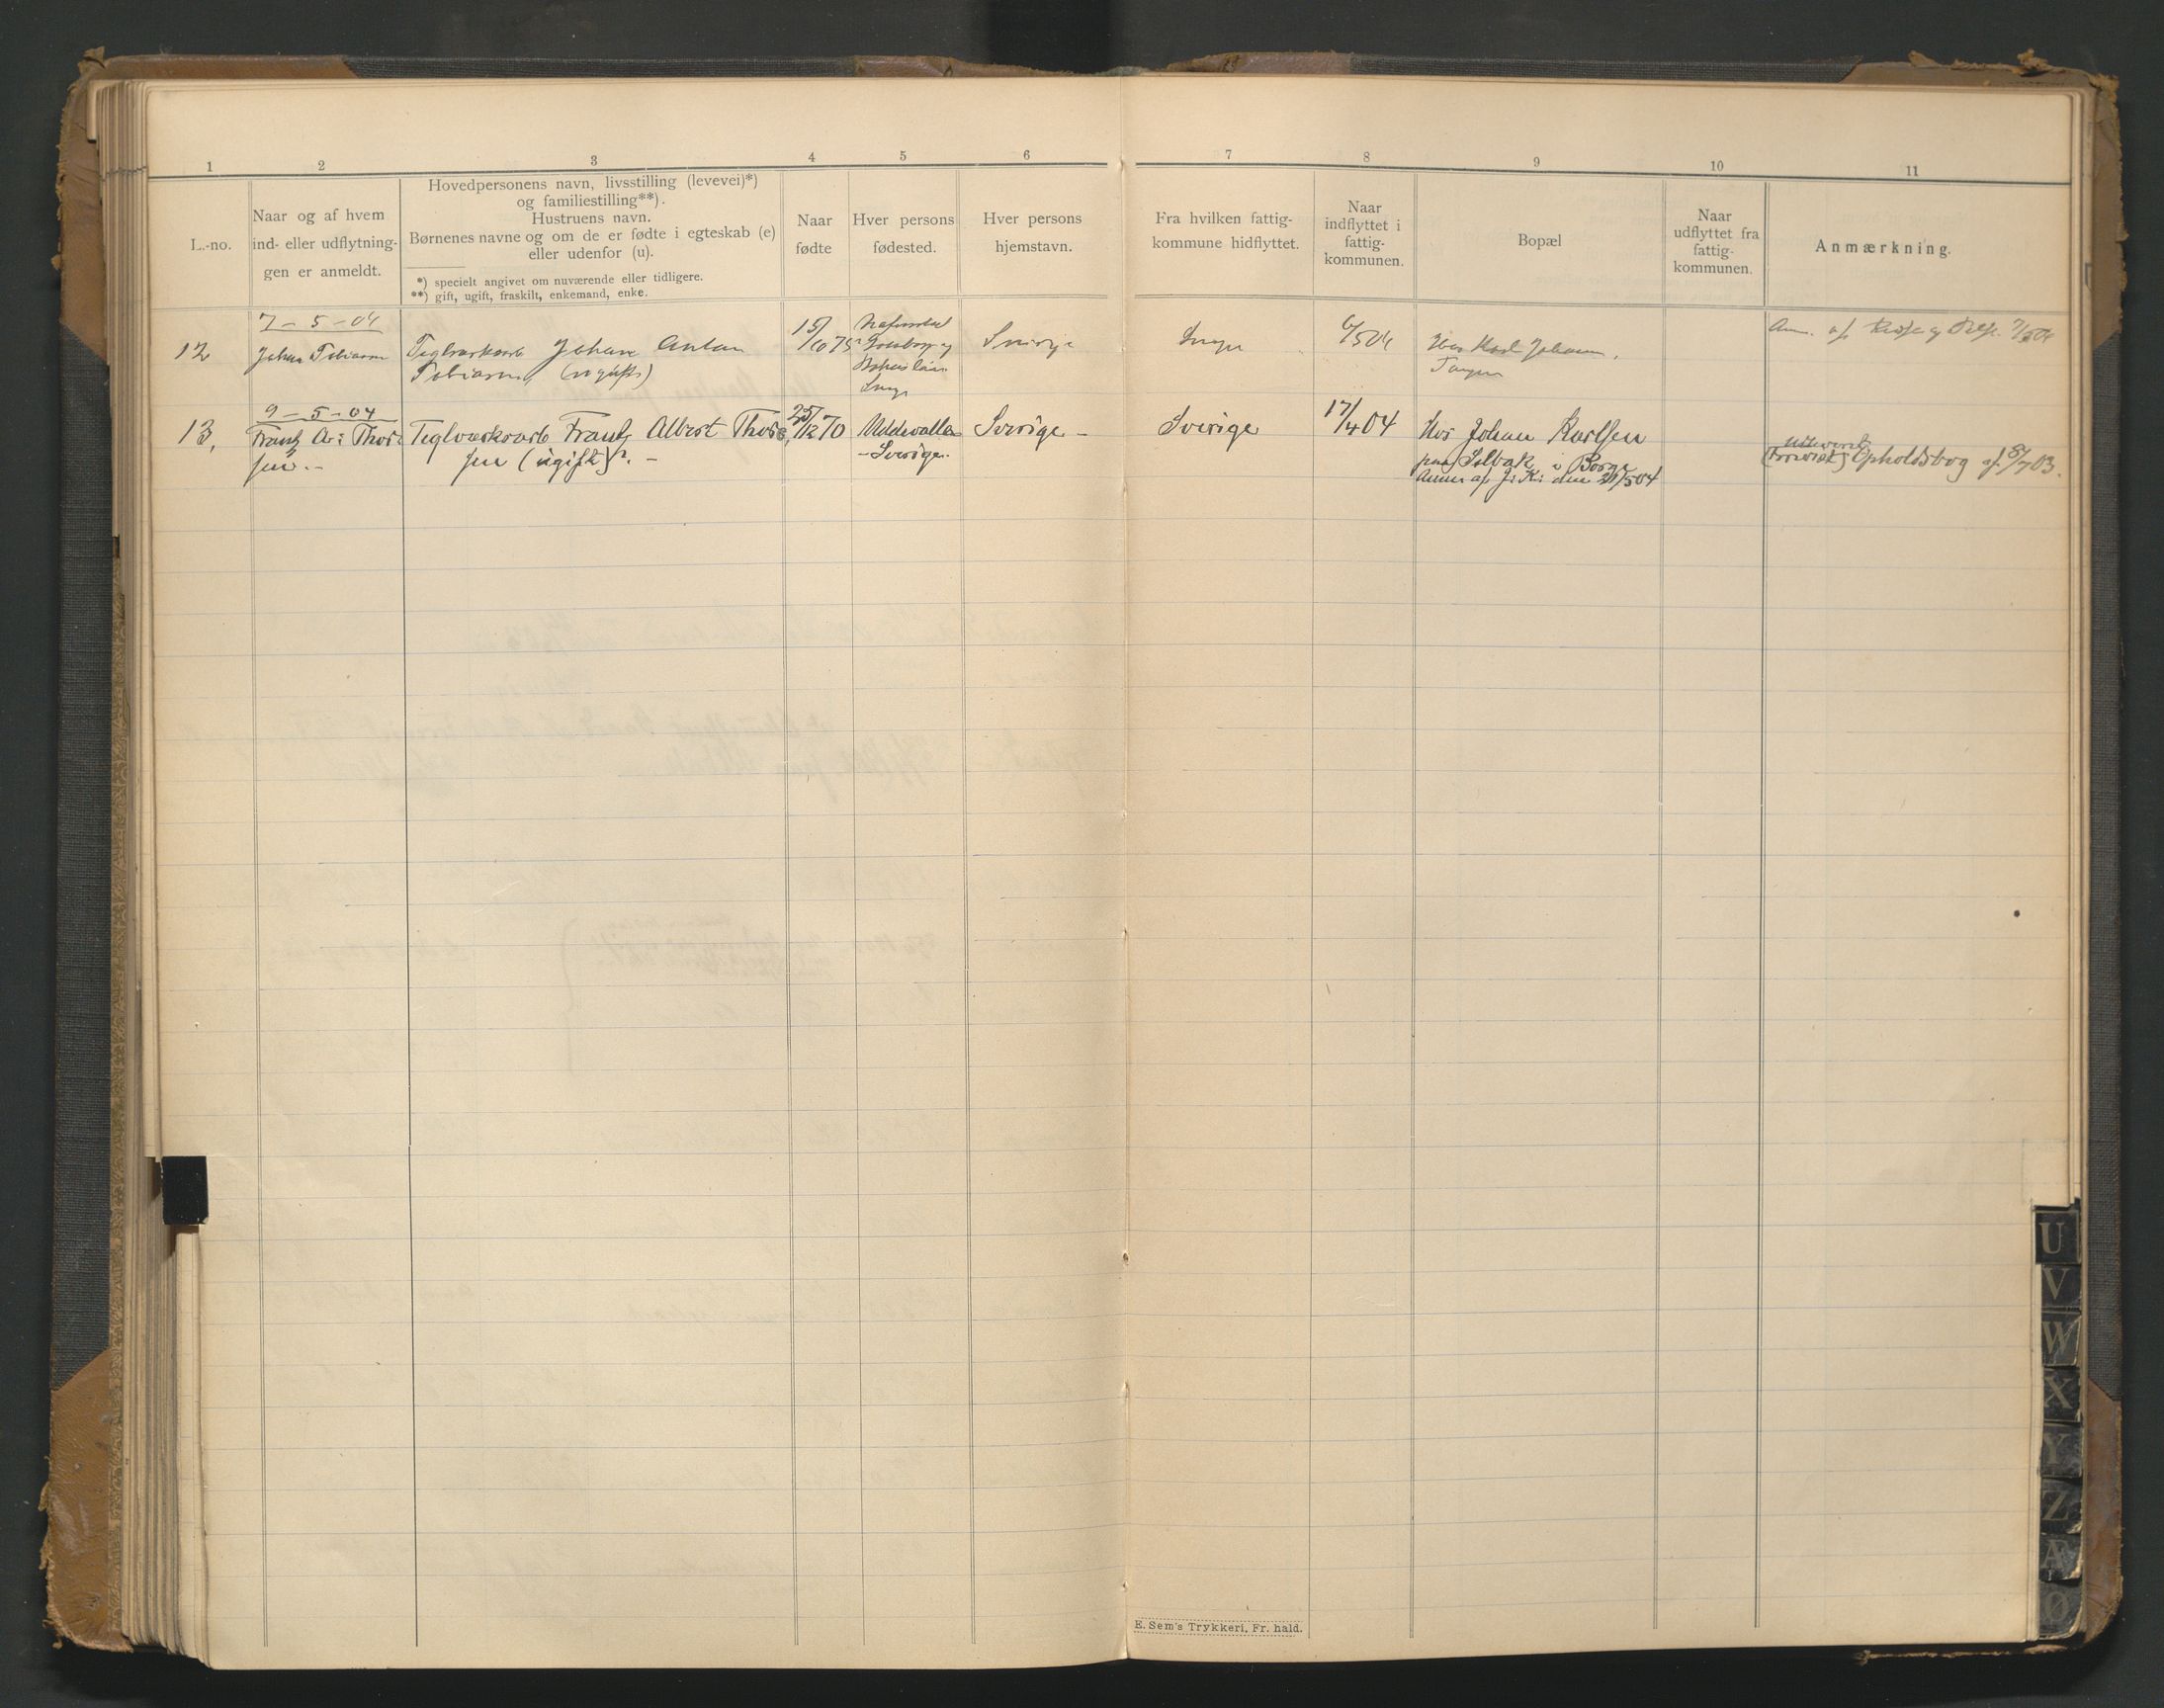 1 2 3 4 5 6 7 8 9 10 11
L.-no.
Naar og af hvem
ind- eller udflytnin-
gen er anmeldt.
Hovedpersonens navn, livsstilling (levevei)*)
og familiestilling**).
Hustruens navn.
Børnenes navne og om de er fødte i egteskab (e)
eller udenfor (u).
*) specielt angivet om nuværende eller tidligere.
**) gift, ugift, fraskilt, enkemand, enke.
Naar
fødte
Hver persons
fødested.
Hver persons
hjemstavn.
Fra hvilken fattig-
kommune hidflyttet.
Naar
indflyttet i
fattig-
kommunen.
Bopæl
Naar
udflyttet fra
fattig-
kommunen.
Anmærkning.
12
7-5-04
Johan Tobiasen
Teglverksarb Johan Anton
Tobiasen, (ugift)
15/10 75
Bohuslän
Sverige
Sverige
Sverige
6/5 04
Hos Karl Johansen,
Tangen
Anm. af 7/5 04
13,
9-5-04
Frantz A: Thor-
sen.-
Teglværksarb Frantz Albert Thor-
sen (ugift). -
25/12 70
Uddevalla
-Sverige.
Sverige -
Sverige
17/4 04
Hos Johan Karlsen
paa Selbak i Borge
Anm af J: K: den 21/5 04
Opholdsbog af 8/7 03.
E. Sem's Trykkeri, Fr. hald.
U
V
W
X
Y
Z
Æ
Ø